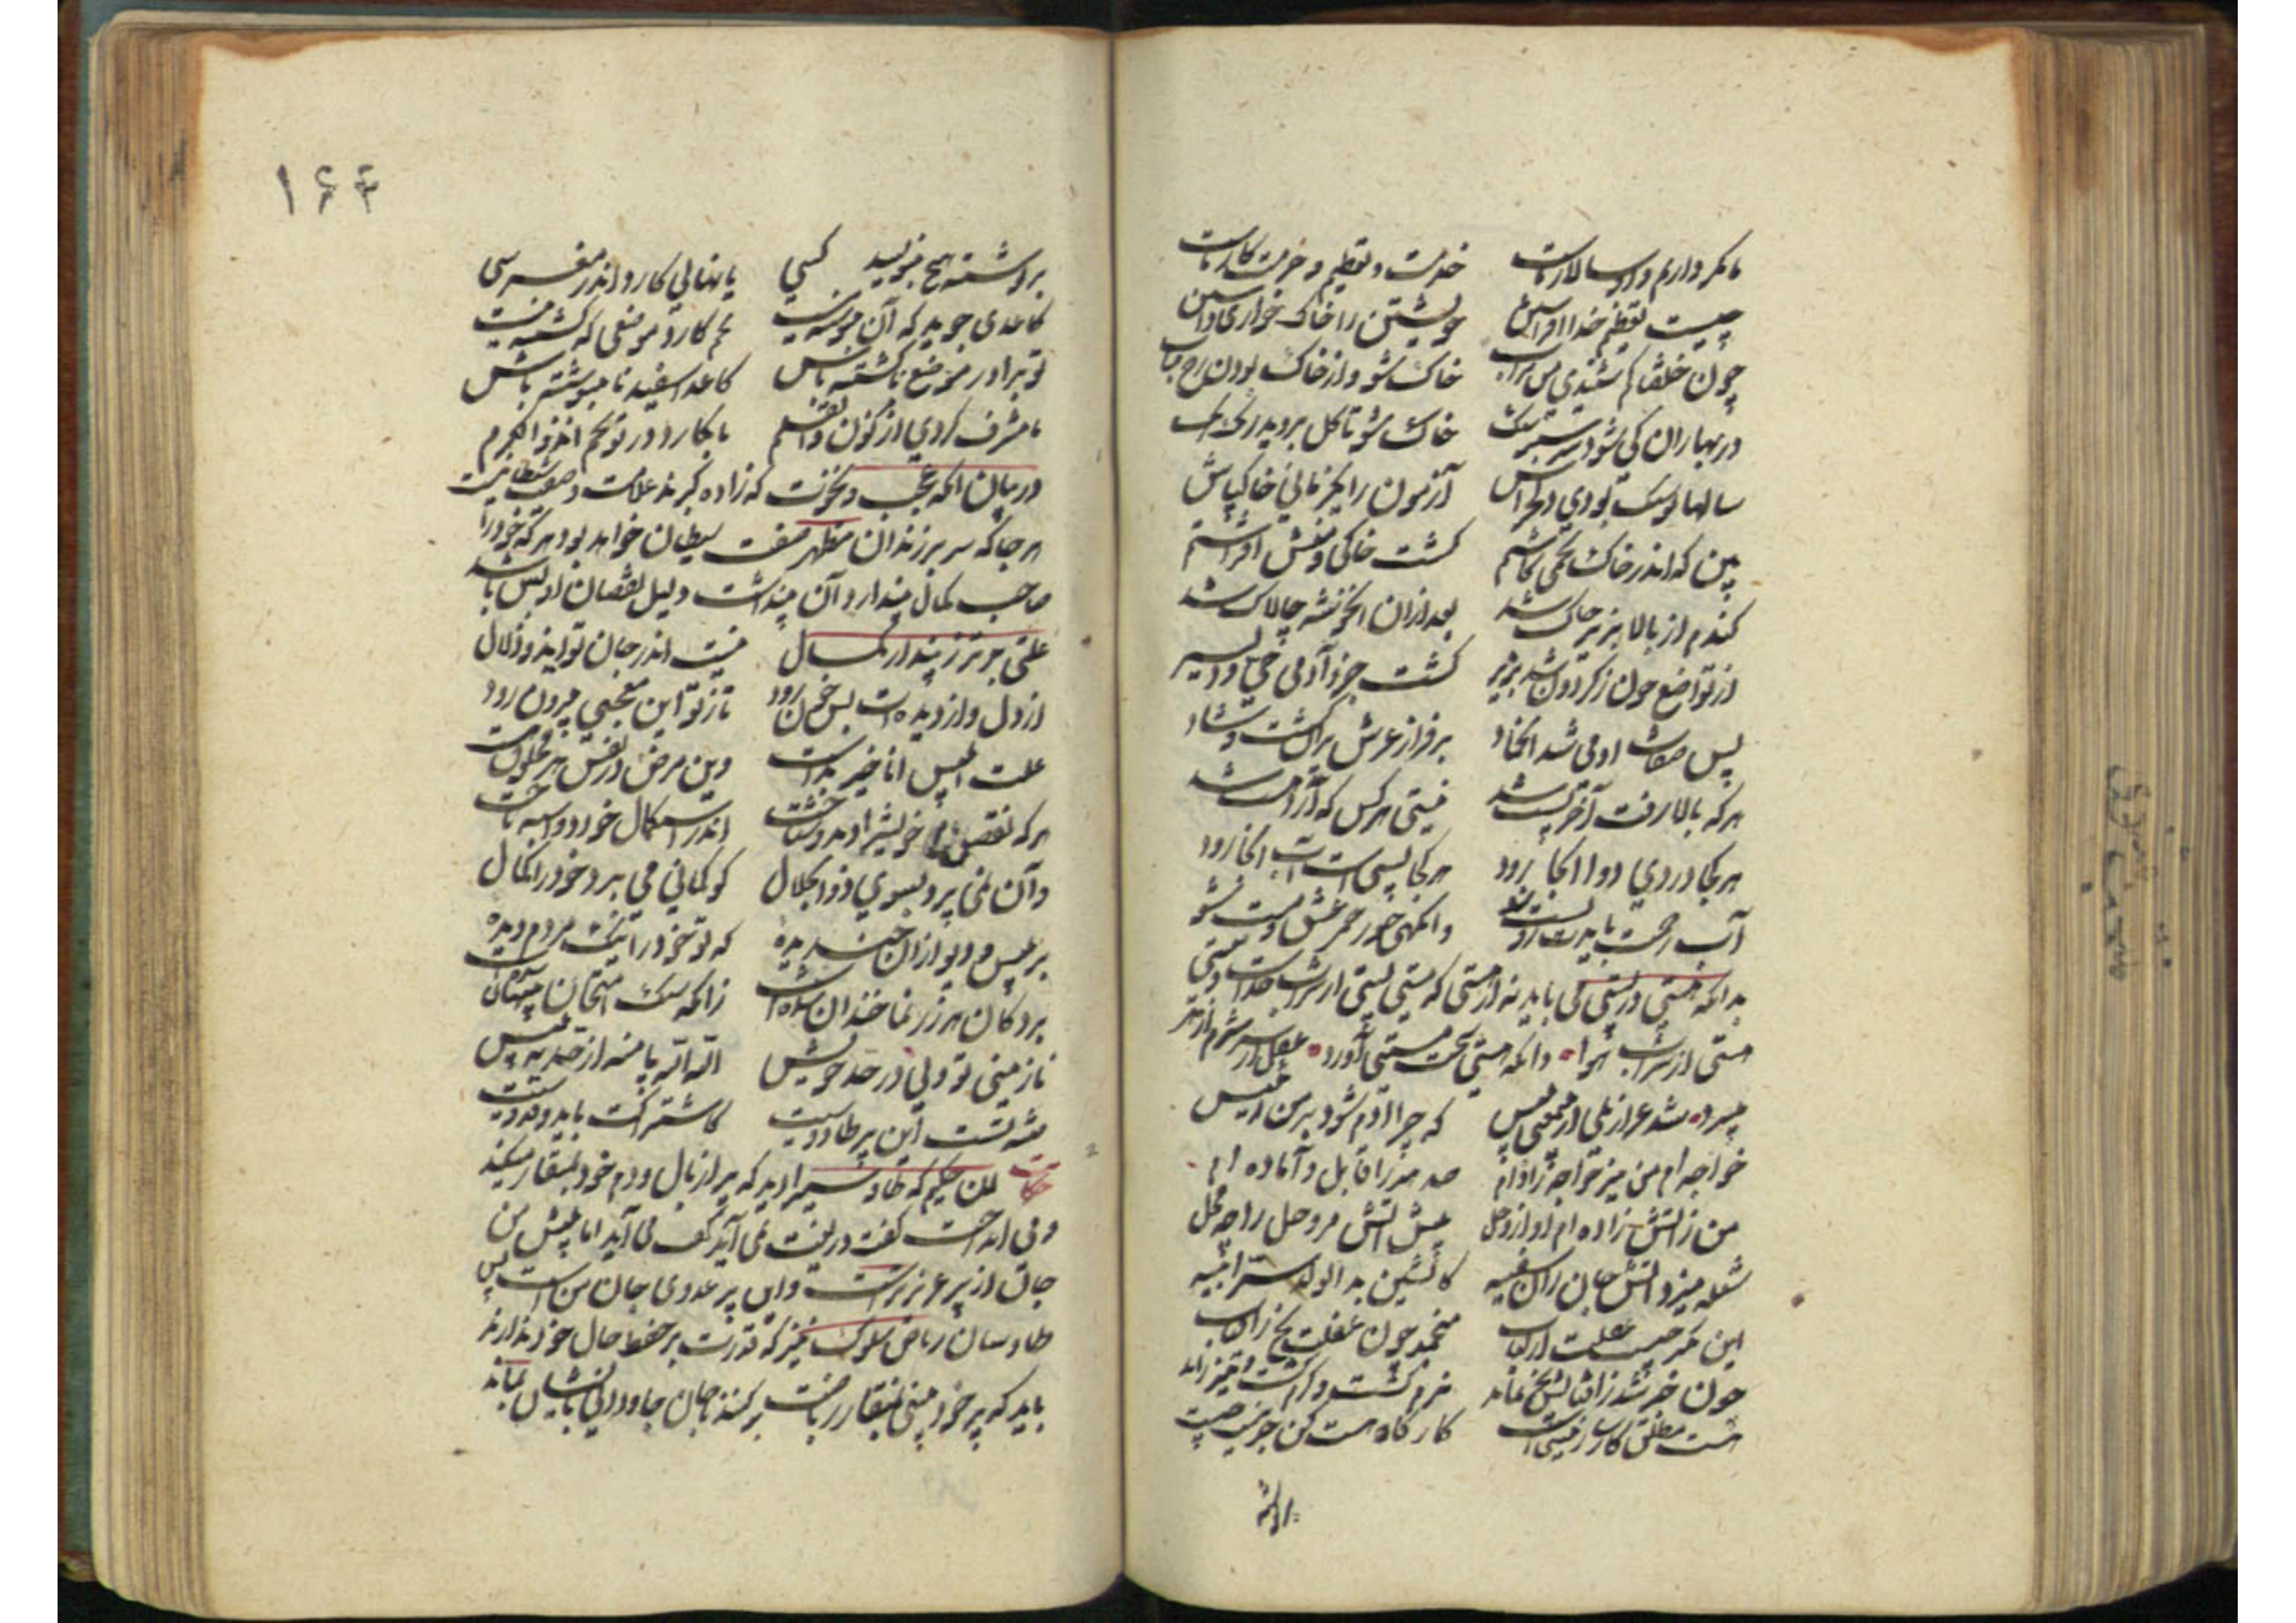 خدمت و تعظیم و حرمت کارماست
چیست تعظیم خدا افراشتن خویشتن را خاک خواری داشتن
خاک شو و از خاک بودن رخ متاب
در بهاران کی شود سرسبز سنگ خاک شو تا گل بروید رنگ رنگ
سالها تو سنگ بودی دلخراش آزمون را یک زمانی خاک باش
بین که اندر خاک تخمی کاشتم گشت خاکی و منش افراشتم
گندم از بالا بزیر خاک شد بعد ازان او خوشه چالاک شد
از تواضع چون ز گردون شد بزیر گشت جزو آدمی حی و دلیر
پس صفات آدمی شد آن جماد بر فراز عرش پران گشت شاد
هر که بالا رفت آخر پست شد نیستی هر کس که آرد هست شد
هر کجا دردی دوا آنجا رود هر کجا پستی است آب آنجا رود
آب رحمت بایدت رو پست شو وانگهی خور خمر عشق و مست شو
بدانکه هستی در پستی می باید نه در مستی که
مستی از شراب هوا و آنکه هستی
شد عزازیلی ازین مستی بلیس که چرا آدم شود بر من رئیس
خواجه ام من نیز خواجه زاده ام صد هنر را قابل و آماده ام
من ز آتش زاده ام او از وحل پیش آتش مر وحل را چه محل
شعله میزد آتش جان سفیه کاتشین بد الولد سر ابیه
این تکبر چیست غفلت از لباب منجمد چون غفلت یخ ز آفتاب
چون خبر شد ز آفتابش یخ نماند نرم گشت و گرم گشت و تیز راند
هست مطلق کارساز نیستی است کارگاه هست کن جز نیست چیست
بر نوشته
۱۶۴
بر نوشته هیچ بنویسد کسی یا نهالی کارد اندر مغرسی
کاغذی جوید که آن بنوشته نیست تخم کارد موضعی که کشته نیست
تو برادر موضع ناکشته باش کاغذ اسفید نابنوشته باش
تا مشرف گردی از نون والقلم تا بکارد در تو تخم آن ذوالکرم
در بیان آنکه عجب و نخوت که زاده کبرند علامت و صفت شیطانیست
هر جا که سر برزند آن مظهر صفت شیطان خواهد بود هر که خود را
صاحب کمال پندارد آن پنداشت دلیل نقصان او بس باشد
علتی بدتر ز پندار کمال نیست اندر جان تو ای ذودلال
از دل و از دیده ات بس خون رود تا ز تو این معجبی بیرون رود
علت ابلیس انا خیر بدست وین مرض در نفس هر مخلوق هست
هر که نقص خویش را دید و شناخت اندر استکمال خود دو اسبه تاخت
و آن نمی پرد بسوی ذوالجلال کو گمانی می برد خود را کمال
بر بلیس و دیو ازان خندیده که تو خود را نیک مردم دیده
بر دکان هر زرنما خندان شده است زانکه سنگ امتحان پنهان شدست
نازنینی تو ولی در حد خویش الله الله پا منه از حد به پیش
حکایت آن حکیم که طاوسیرا دید که پر از بال و دم خود بمنقار میکند
و می انداخت گفت دریغت نمی آید گفت می آید اما پیش من
جان از پر عزیزتر است و این پر عدوی جان من است پس
طاوسان ریاض سلوک نیز که قدرت بر حفظ حال خود ندارند
باید که پر خود بینی بمنقار ریاضت برکنند تا جان جاودانی